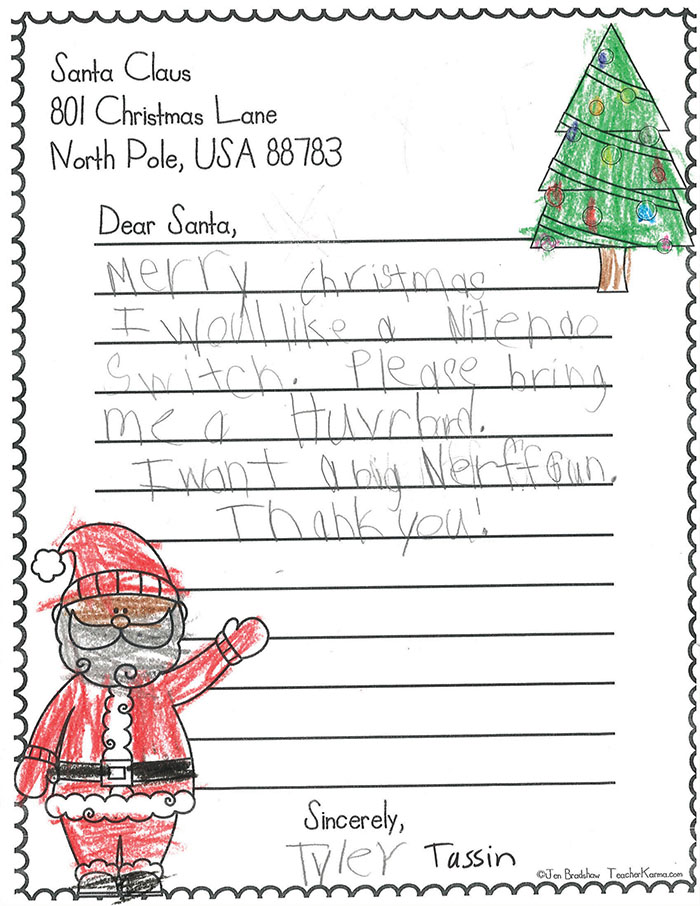 Santa Claus
801 Christmas Lane
North Pole, USA 88783
Dear Santa,
Merry christmas
I woull like a Nitendo
Switch. Please bring
me a Huvrbrd.
I want a big Nerff Gun.
Thank you!
Sincerely,
Tyler Tassin
©Jen Bradshaw TeacherKarma.com